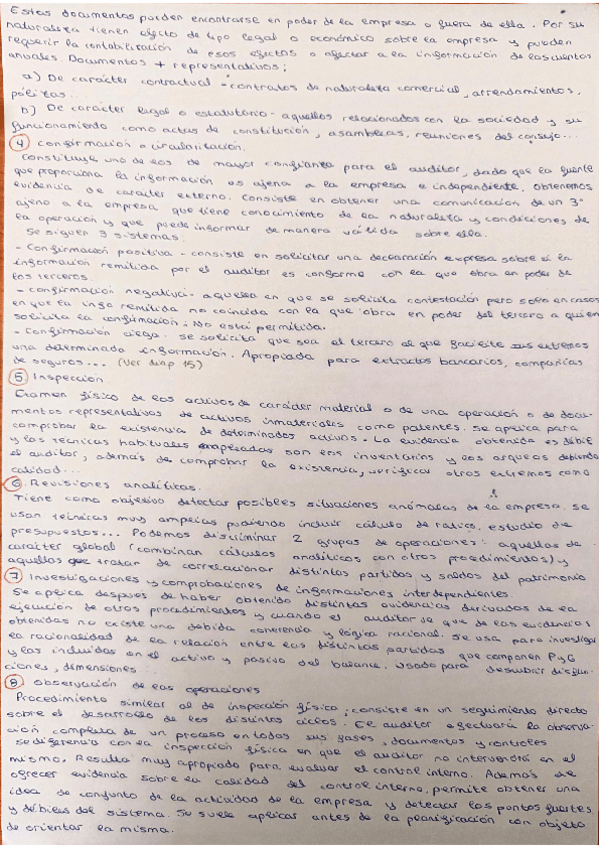 Estos documentos pueden encontrarse en poder de la empresa o fuera de ella. Por su
naturaleza tienen efecto de tipo legal o económico sobre la empresa y pueden
requerir la contabilización de esos efectos o afectar a la información de las cuentas
anuales. Documentos + representativos:
a) De carácter contractual - contratos de naturaleza comercial, arrendamientos,
pólizas...
b) De carácter legal o estatutario - aquellos relacionados con la sociedad y su
funcionamiento como actas de constitución, asambleas, reuniones del consejo...
④ Confirmación o circularización.
Constituye uno de los de mayor confianza para el auditor, dado que la fuente
que proporciona la información es ajena a la empresa e independiente, obtenemos
evidencia de carácter externo. Consiste en obtener una comunicación de un 3º
ajeno a la empresa que tiene conocimiento de la naturaleza y condiciones de
la operación y que puede informar de manera válida sobre ella.
Se siguen 3 sistemas.
- Confirmación positiva - consiste en solicitar una declaración expresa sobre si la
información remitida por el auditor es conforme con la que obra en poder de
los terceros
- confirmación negativa - aquella en que se solicita contestación pero solo en casos
en que la info remitida no coincida con la que obra en poder del tercero a quien
solicita la confirmación. No está permitida.
- Confirmación ciega. se solicita que sea el tercero el que facilite sus extremos
una determinada información. Apropiada para extractos bancarios, compañías
de seguros... (Ver 15)
⑤ Inspección
Examen físico de los activos de carácter material o de una operación o de docu-
mentos representativos de activos inmateriales como patentes. Se aplica para
comprobar la existencia de determinados activos. La evidencia obtenida es débil
y las técnicas habituales empleadas son los inventarios y los arqueos debiendo
el auditor, además de comprobar la existencia, verificar otros extremos como
calidad...
⑥ Revisiones analíticas.
Tiene como objetivo detectar posibles situaciones anómalas de la empresa. Se
usan técnicas muy amplias pudiendo incluir cálculo de ratios, estudio de
presupuestos... Podemos discriminar 2 grupos de operaciones: aquellas de
carácter global (combinan cálculos analíticos con otros procedimientos) y
aquellos que tratan de correlacionar distintas partidas y saldos del patrimonio
⑦ Investigaciones y comprobaciones de informaciones interdependientes.
Se aplica después de haber obtenido distintas evidencias derivadas de la
ejecución de otros procedimientos y cuando el auditor ve que de las evidencias
obtenidas no existe una debida coherencia y lógica racional. Se usa para investigar
la racionalidad de la relación entre las distintas partidas que componen PyG
y las incluidas en el activo y pasivo del balance. Usado para descubrir disfun-
ciones, dimensiones
⑧ Observación de las operaciones
Procedimiento similar al de inspección física; consiste en un seguimiento directo
sobre el desarrollo de los distintos ciclos. El auditor efectuará la observa-
ción completa de un proceso en todas sus fases, documentos y controles
se diferencia con la inspección física en que el auditor no intervendrá en el
mismo. Resulta muy apropiado para evaluar el control interno. Además de
ofrecer evidencia sobre la calidad del control interno, permite obtener una
idea de conjunto de la actividad de la empresa y detectar los puntos fuertes
y débiles del sistema. Se suele aplicar antes de la planificación con objeto
de orientar la misma.